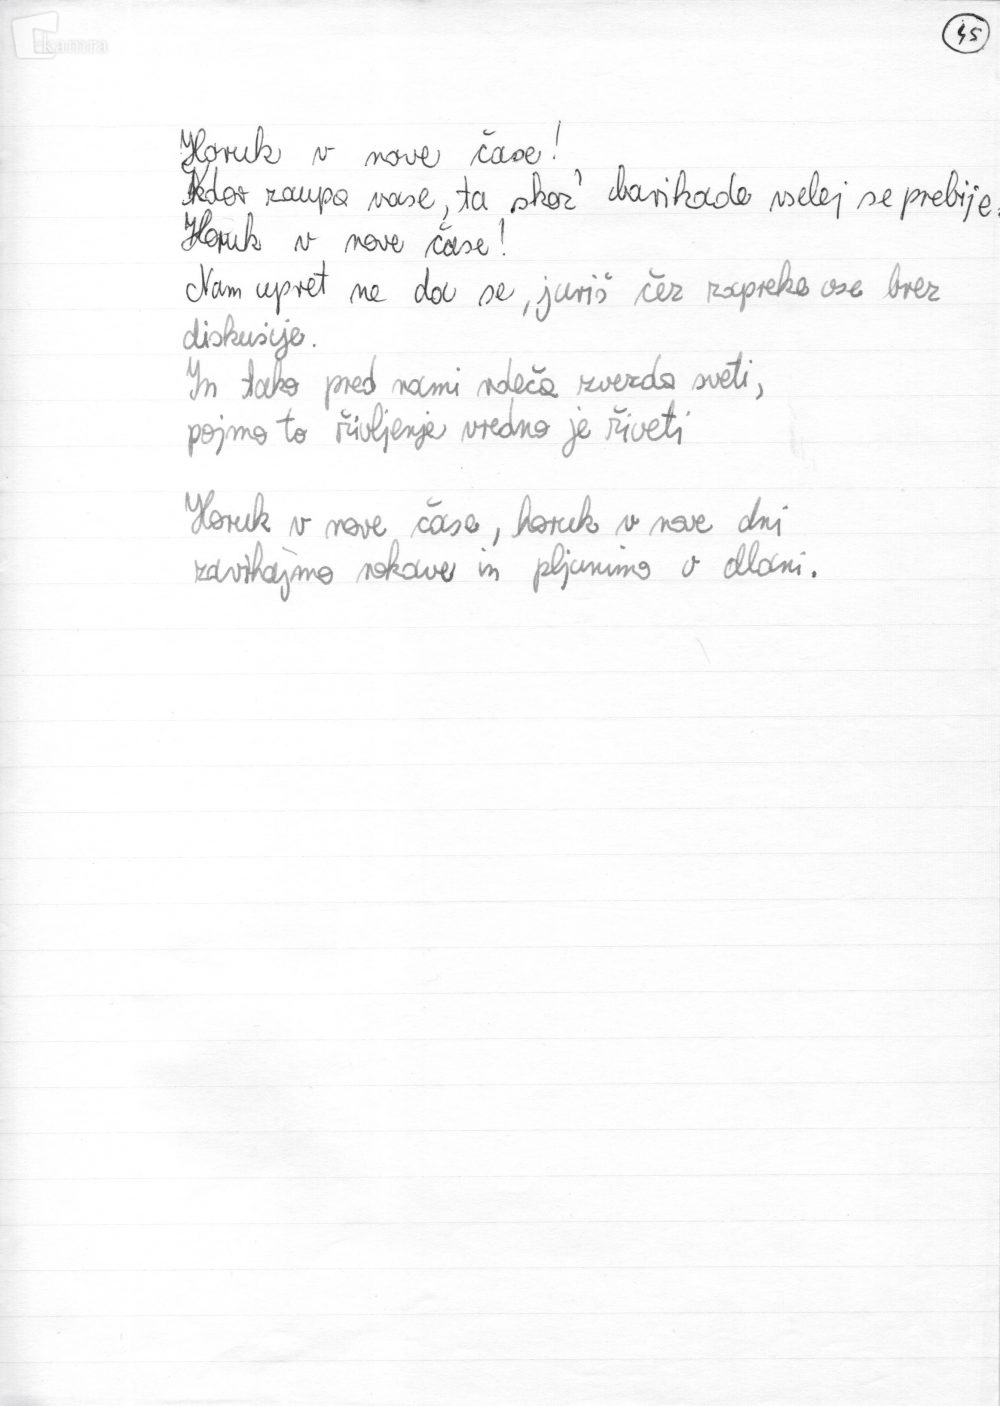 kamra
45
Horuk v nove čase!
Kdor zaupa vase, ta skoz' barikade vselej se prebije.
Horuk v nove čase!
Nam upret ne da se, juriš čez zapreke vse brez
diskusije.
In tako pred nami rdeča zvezda sveti,
pojmo to življenje vredno je živeti
Horuk v nove čase, horuk v nove dni
zavihajmo rokave in pljunimo v dlani.